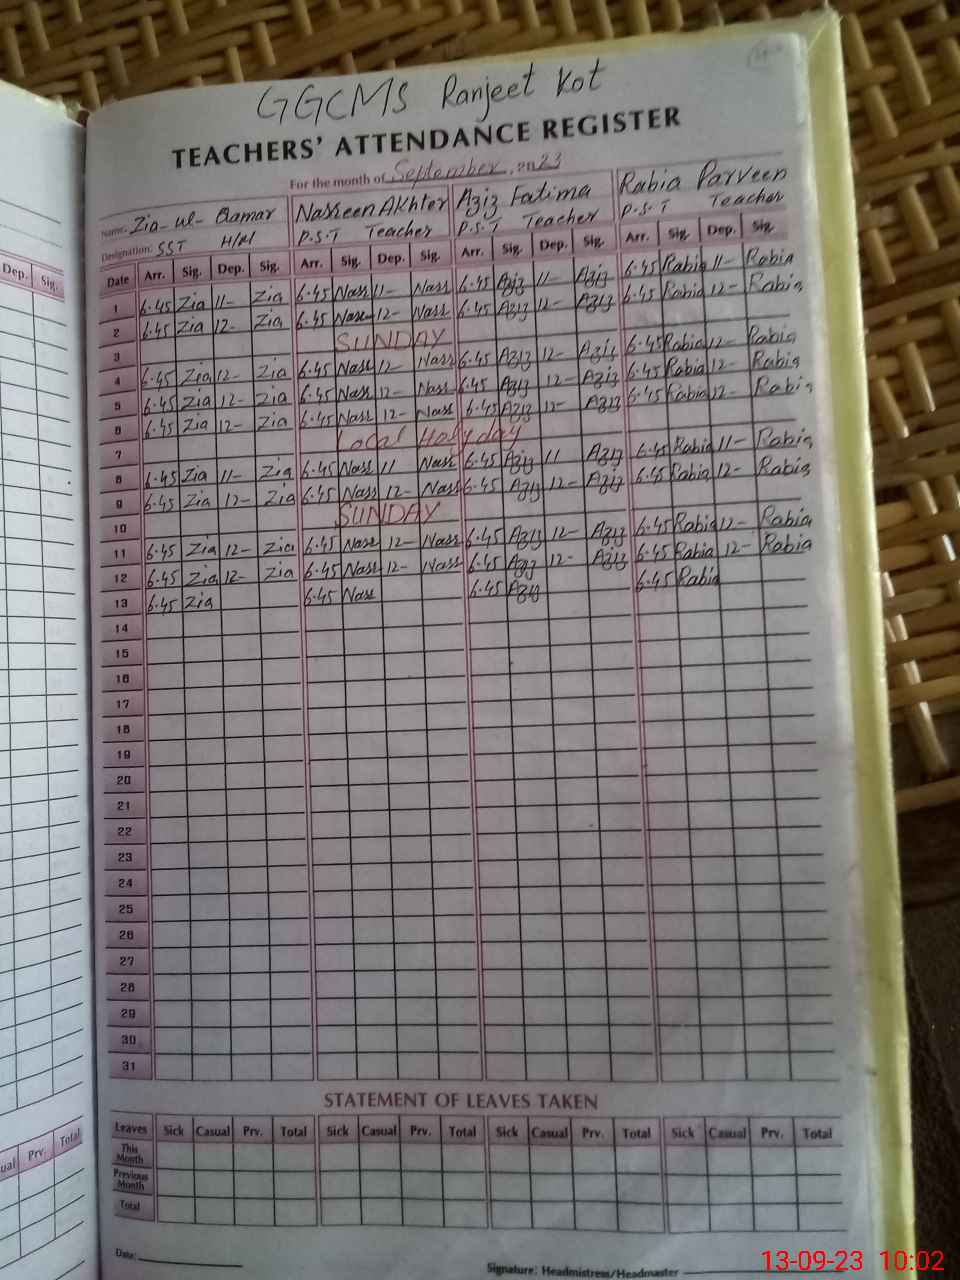 GGCMS Ranjeet Kot
TEACHERS' ATTENDANCE REGISTER
For the month of September, 2023
Name: Zia-ul-Qamar Nasreen Akhter Aziz Fatima Rabia Parveen
Designation: SST H/M P.S.T Teacher P.S.T Teacher P.S.T Teacher
Dep. Sig. Date Arr. Sig. Dep. Sig. Arr. Sig. Dep. Sig. Arr. Sig. Dep. Sig. Arr. Sig. Dep. Sig.
1 6.45 Zia 11- Zia 6.45 Nass 11- Nass 6.45 Aziz 11- Aziz 6.45 Rabia 11- Rabia
2 6.45 Zia 12- Zia 6.45 Nass 12- Nass 6.45 Aziz 12- Aziz 6.45 Rabia 12- Rabia
3 SUNDAY
4 6.45 Zia 12- Zia 6.45 Nass 12- Nass 6.45 Aziz 12- Aziz 6.45 Rabia 12- Rabia
5 6.45 Zia 12- Zia 6.45 Nass 12- Nass 6.45 Aziz 12- Aziz 6.45 Rabia 12- Rabia
6 6.45 Zia 12- Zia 6.45 Nass 12- Nass 6.45 Aziz 12- Aziz 6.45 Rabia 12- Rabia
7 Local Holyday
8 6.45 Zia 11- Zia 6.45 Nass 11 Nass 6.45 Aziz 11 Aziz 6.45 Rabia 11- Rabia
9 6.45 Zia 12- Zia 6.45 Nass 12- Nass 6.45 Aziz 12- Aziz 6.45 Rabia 12- Rabia
10 SUNDAY
11 6.45 Zia 12- Zia 6.45 Nass 12- Nass 6.45 Aziz 12- Aziz 6.45 Rabia 12- Rabia
12 6.45 Zia 12- Zia 6.45 Nass 12- Nass 6.45 Aziz 12- Aziz 6.45 Rabia 12- Rabia
13 6.45 Zia 6.45 Nass 6.45 Aziz 6.45 Rabia
14
15
16
17
18
19
20
21
22
23
24
25
26
27
28
29
30
31
STATEMENT OF LEAVES TAKEN
Prv. Total Leaves Sick Casual Prv. Total Sick Casual Prv. Total Sick Casual Prv. Total Sick Casual Prv. Total
This Month
Previous Month
Total
Date:
Signature: Headmistress/Headmaster
13-09-23 10:02